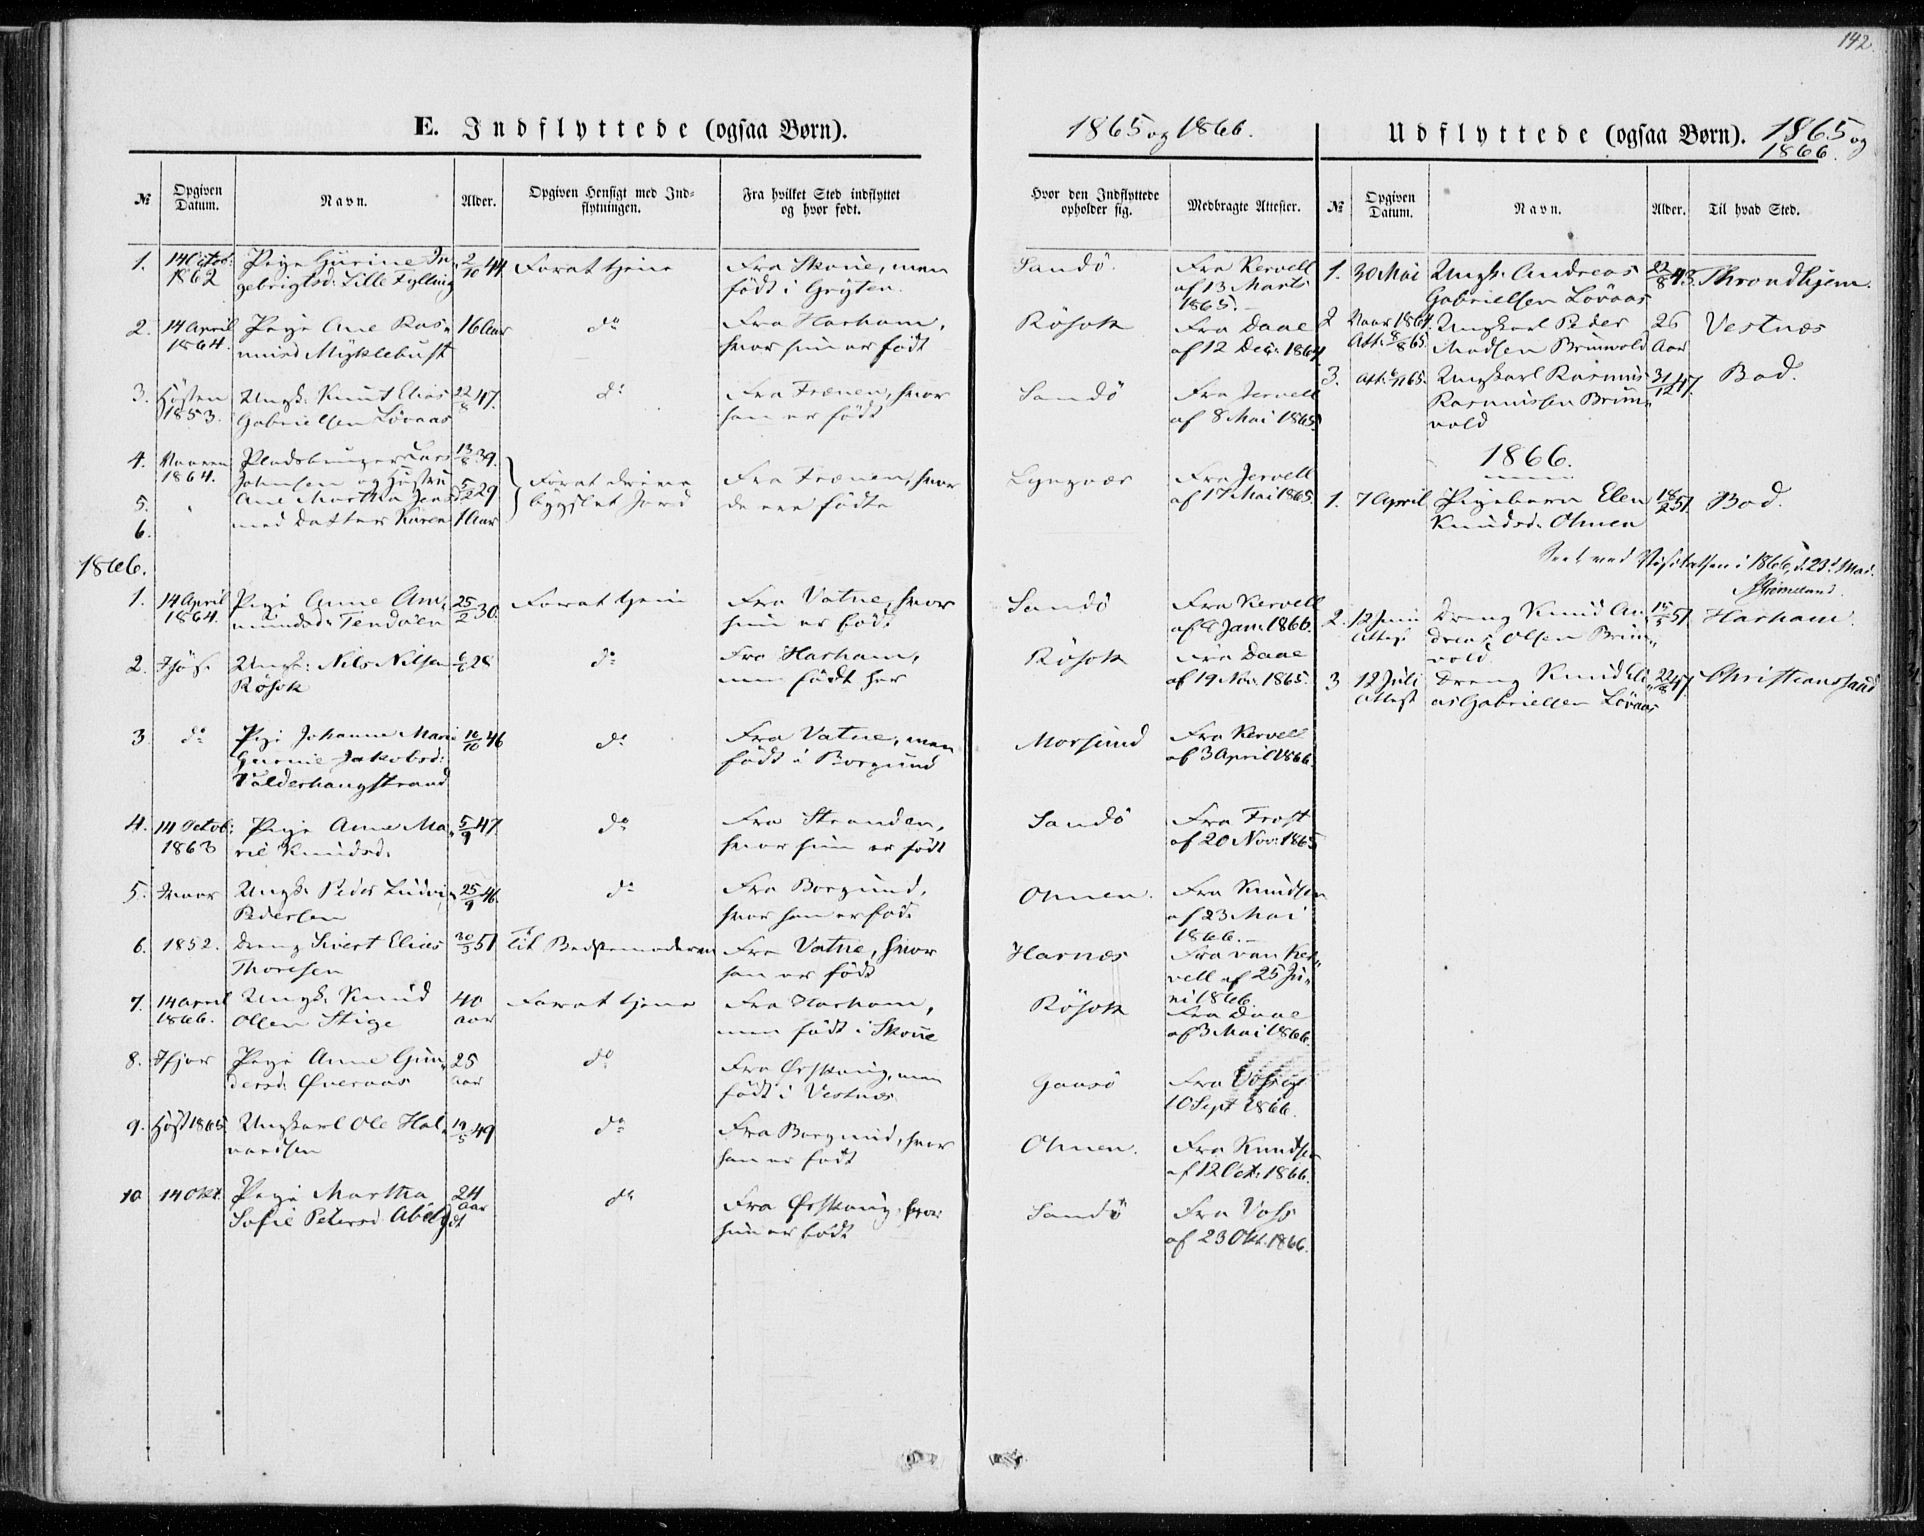 142.
E. Indflyttede (ogsaa Børn). 1865 og 1866.
№ Opgiven Datum. Navn. Alder. Opgiven Hensigt med Indflytningen. Fra hvilket Sted indflyttet og hvor født. Hvor den Indflyttede opholder sig. Medbragte Attester.
1. 14 Octob: 1862 Pige Gurine Ingebrigtsd: Lille Fylling 2/10 44 For at tjene Fra Skoue, men født i Gryten. Sandö. Fra Kervell af 13 Marts 1865.
2. 14 April 1864. Pige Ane Rasmusd Myklebust 16 Aar do Fra Harham, hvor hun er født Rösok Fra Daae af 12 Dec: 1864
3. Hösten 1853. Ungk. Knut Elias Gabrielsen Lövaas 22/8 47. do Fra Frænen, hvor han er født Sandö Fra Jervell af 8 Mai 1865
4. Vaaren 1864. Pladsbruger Lars Johnsen og Hustru 13/8 39.
5. " Ane Martha Jensd 5/2 29 For at drive bygslet Jord Fra Frænen, hvor de ere födte Lyngnæs Fra Jervell af 17 Mai 1865.
6. med Datter Karen 1 Aar
1866.
1. 14 April 1864. Pige Anne Amundsd: Tendöen 25/2 30. For at tjene Fra Vatne, hvor hun er født Sandö Fra Kervell af Jan: 1866.
2. Ungk: Nils Nilsen Rösok 28 do Fra Harham, men født her Rösok Fra Daae af 19 Nov. 1865.
3 do Pige Johanne Marie Gurine Jakobsd: Valderhaugstrand 16/10 46 do Fra Vatne, men født i Borgund Morsund Fra Kervell af 3 April 1866.
4. 14 Octob: 1863 Pige Anne Marie Knudsd. 5/9 47 do Fra Stranden, hvor hun er født Sandö Fra Frost af 20 Nov: 1865
5. Ungk. Peder Ludvig Pedersen 25/9 46. do Fra Borgund, hvor han er født Ohnen. Fra Knudsen af 23 Mai 1866.
6. 1852. Dreng Sivert Elias Thoresen 20/3 51 Til Bedstemoderen Fra Vatne, hvor han er født Harnæs Fra van Kervell af 25 Juni 1866.
7. 14 April 1866. Ungk. Knud Olsen Stige 40 aar For at tjene Fra Harham, men født i Skoue Rösok Fra Daae af 3 Mai 1866.
8. Ifjor Pige Anne Gundersd: Øveraas 25 aar do Fra Ørskoug, men født i Vestnæs Gaasö Fra Voss af 10 Sept 1866.
9. Höst 1865 Ungkarl Ole Halvardsen 19/5 49 do Fra Borgund, hvor han er født Ohnen. Fra Knudsen af 12 Oct: 1866.
10 14 Okt. Pige Martha Sofie Petersd 24 Aar do Fra Ørskoug, hvor hun er født Sandö Fra Voss af 23 Okt. 1866.
Udflyttede (ogsaa Børn). 1865 og 1866.
№ Opgiven Datum. Navn. Alder. Til hvad Sted.
1. 30 Mai Ungk. Andreas Gabrielsen Lövaas 22/8 43. Throndhjem.
2 Vaar 1864. Att. 8/8 65. Ungkarl Peder Madsen Brunvold 26 Aar Vestnæs
3. Att. 65. Ungkarl Rasmus Rasmussen Brunvold 31/12 47. Bod.
1866.
1. 7 April Pigebarn Elen Knudsd. Ohnen 18/2 51. Bod.
Seet ved Visitatsen i 1866, d. 23d Mai.
2. 12 Juni Attest Dreng Knud Andreas Olsen Brunvold 51. Harham.
3 12 Juli Attest Dreng Knud Elias Gabrielsen Lövaas 22/8 47. Christianssand